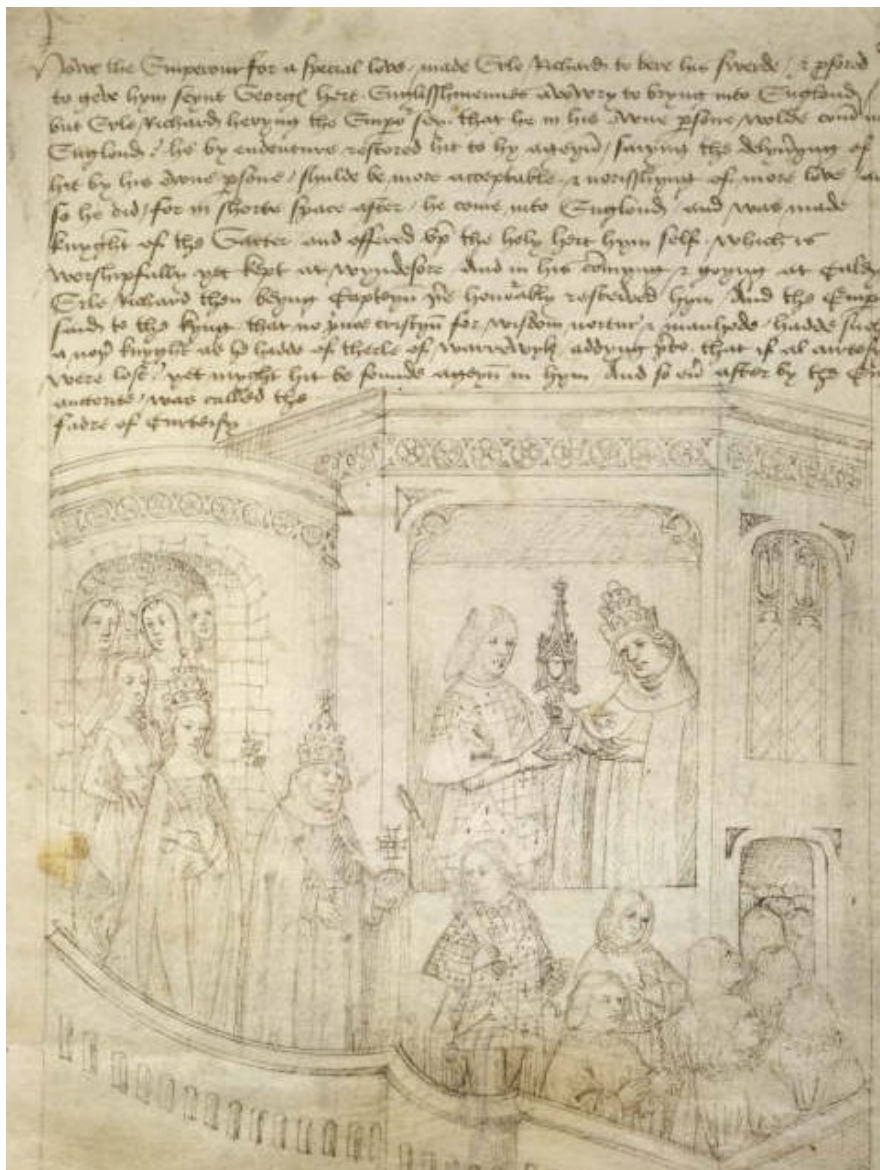 Nowe the Emperour for a special love made Erle Richard to bere his swerde / & pfered
to geve hym seynt Georges hert Englisshmennes avowry to bryng into Englond /
but Erle Richard heryng the Empo sey that he in his owne psone wolde com in
Englond / he by endenture restored hit to hy ageyn / saiyng the delyveryng of
hit by his owne psone / shulde be more acceptable & norisshyng of more love /
so he did / for in shorte space after / he come into Englond / and was made
knyght of the Garter and offered up the holy hert hym self which is
worshipfully yet kept at Wyndesore And in his comyng & goyng at
Erle Richard then beyng Capteyn honorably resceived hym And the Emp
said to the kyng that no prince cristyn for wisdom nortur & manhode hadde such
a knyght as he hadde of therle of Warrewyk addyng pto that if al curtesy
were lost / yet myght hit be founde ageyn in hym And so after by the
auctorite was called the
fadre of Curteisy